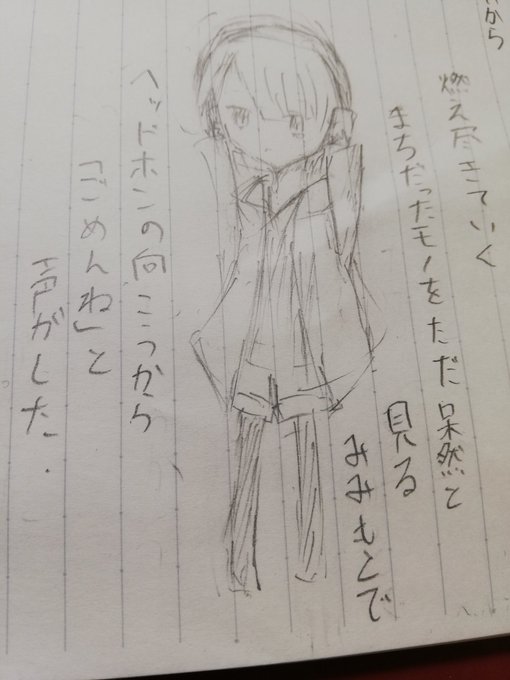 から
燃え尽きていく
まちだったモノをただ呆然と
見る
みみもとで
ヘッドホンの向こうから
「ごめんね」と
声がした.